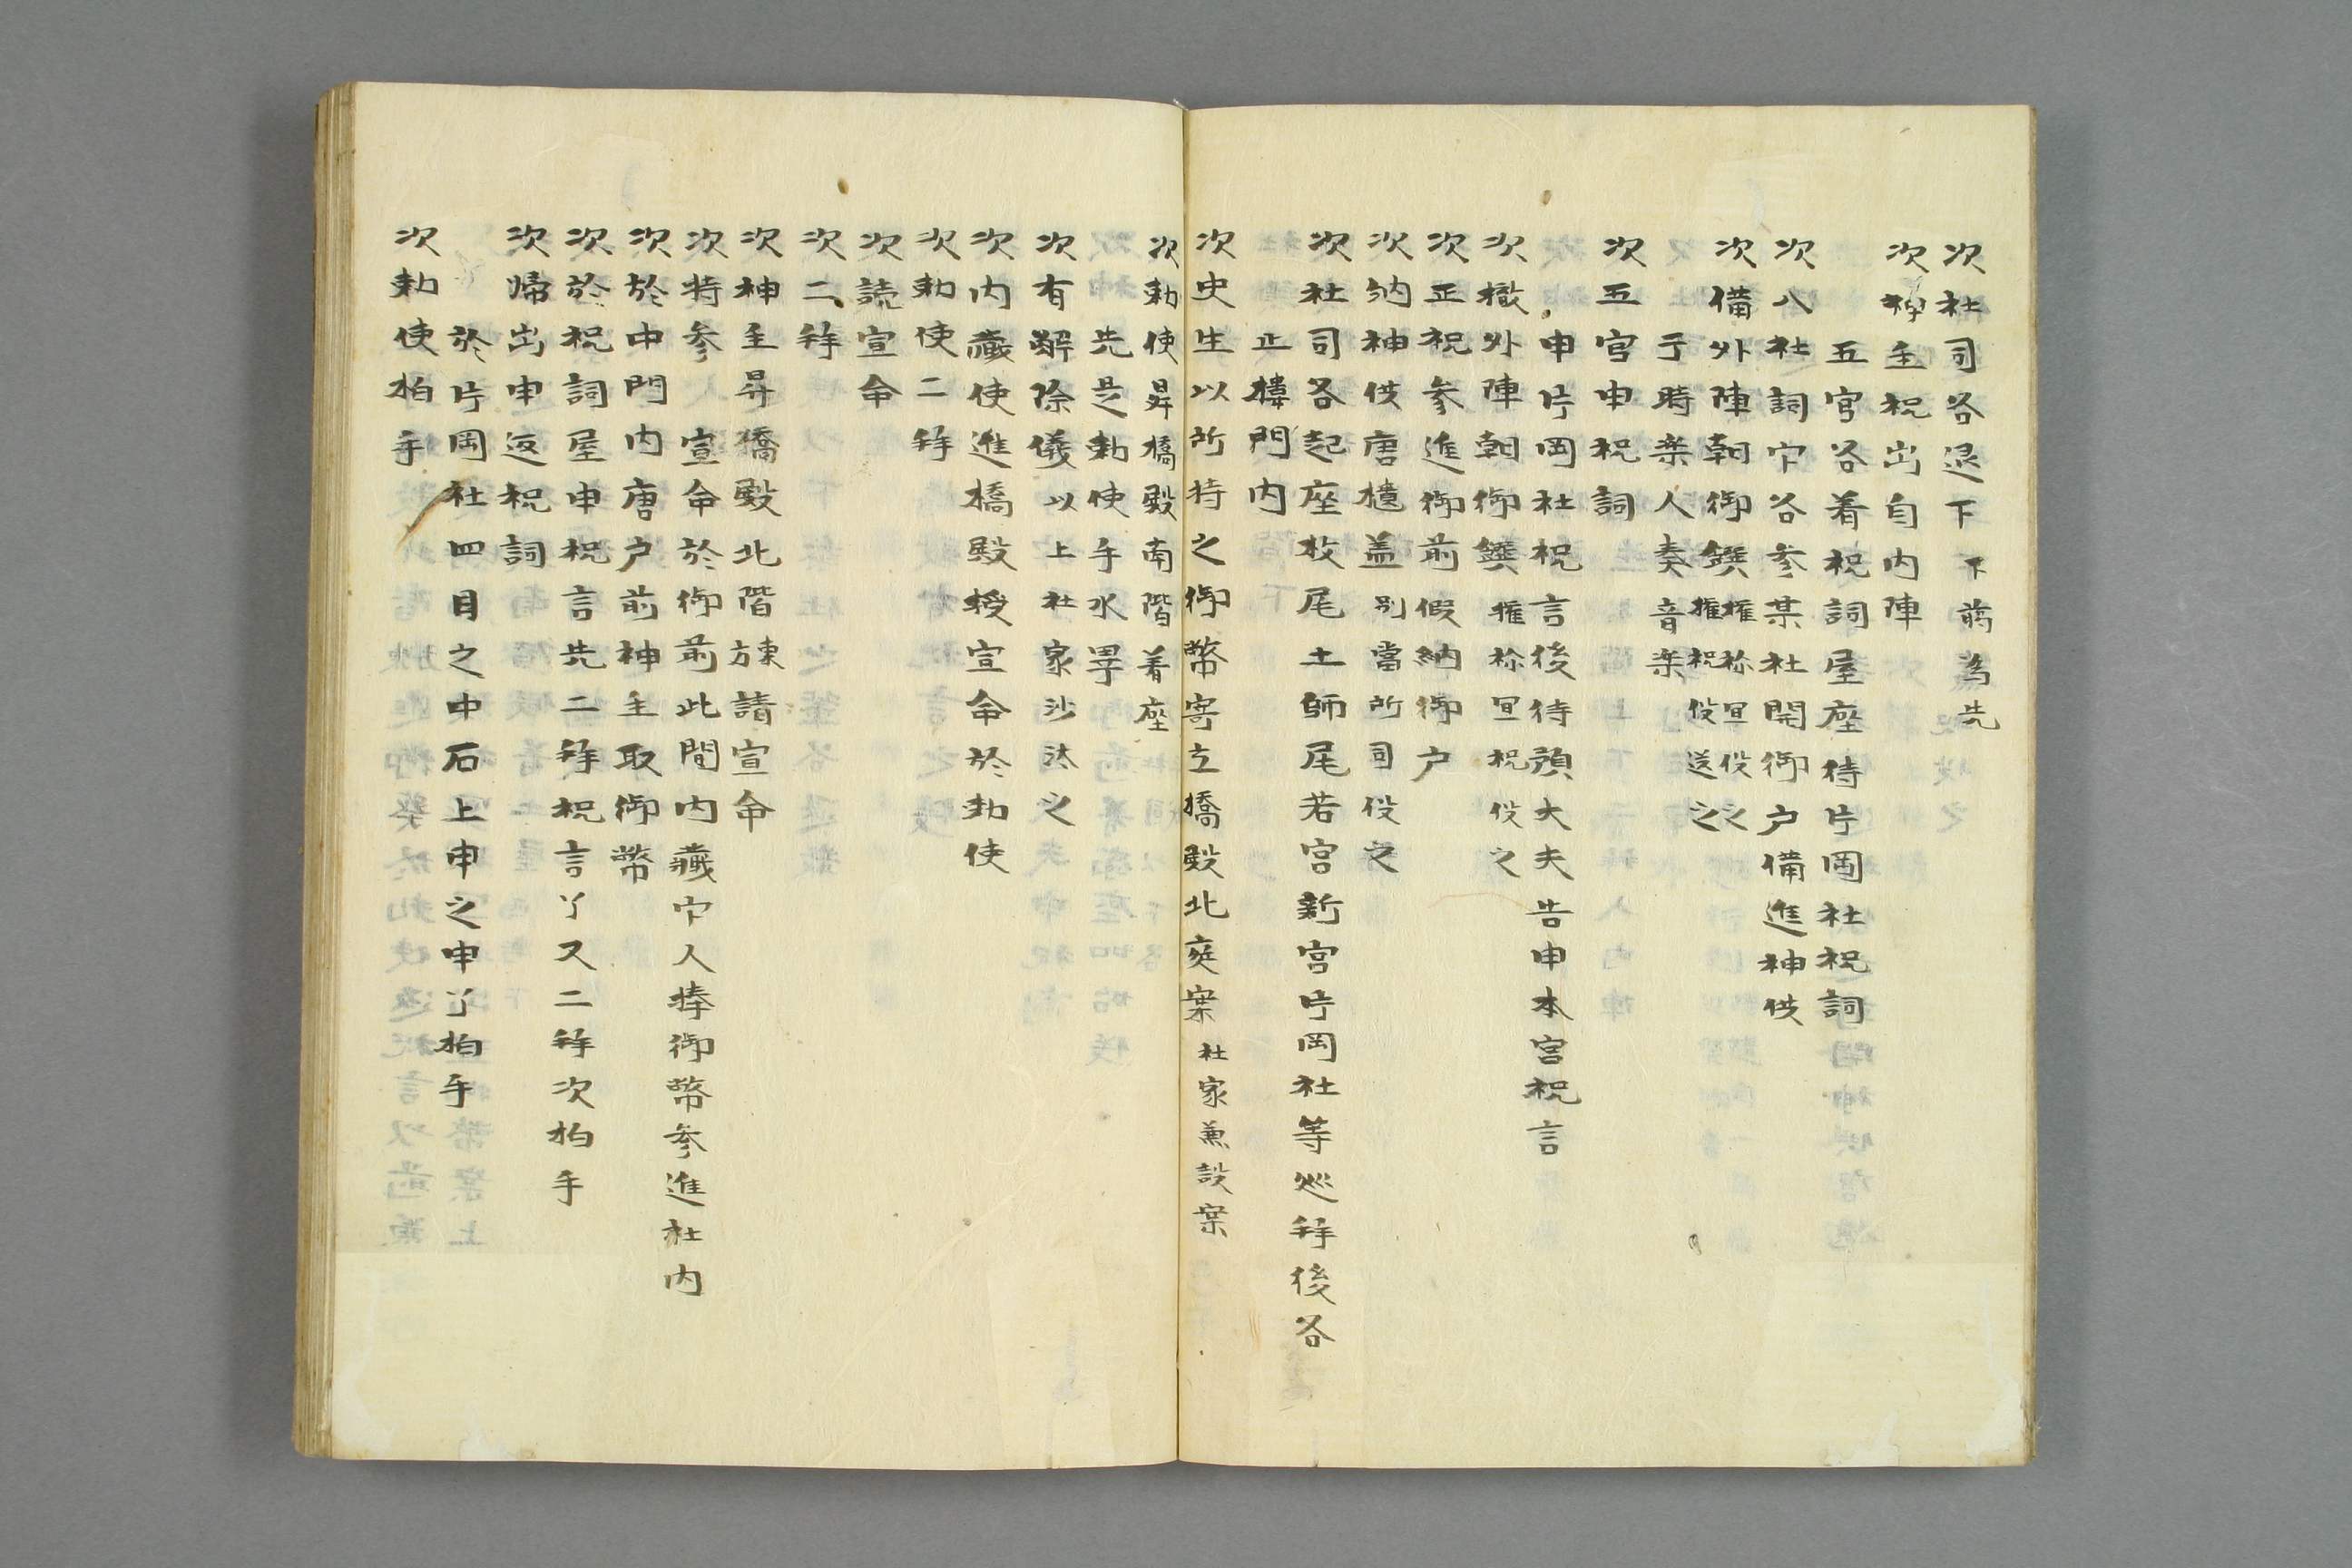 次社司各退下下﨟為先
次神主祝出自内陣
五官各着祝詞屋座待片岡社祝詞
次八社詞官各参某社開御户備進神供
次備外陣朝御饌権祢宜役之
権祝役送之
于時楽人奏音楽
次五官申祝詞
申片岡社祝言後待預大夫告申本宮祝言
次撤外陣朝御饌権祢宜祝役之
次正祝参進御前假納御户
次納神供唐櫃盖別當所司役之
次社司各起座拔尾土師尾若宮新宮片岡社等巡拜後各
正樓門内
次史生以所持之御幣寄立橋殿北庭案社家兼設案
次勅使昇橋殿南階着座
先是勅使手水畢
次有解除儀以上社家沙汰之
次内藏使進橋殿授宣命於勅使
次勅使二拜
次読宣命
次二拜
次神主昇橋殿北階旅請宣命
次持参宣命於御前此間内藏官人捧御幣参進社内
次於中門内唐户前神主取御幣
次於祝詞屋申祝言先二拜祝言了又二拜次拍手
次帰出申返祝詞
於片岡社四目之中石上申之申了拍手
次勅使拍手